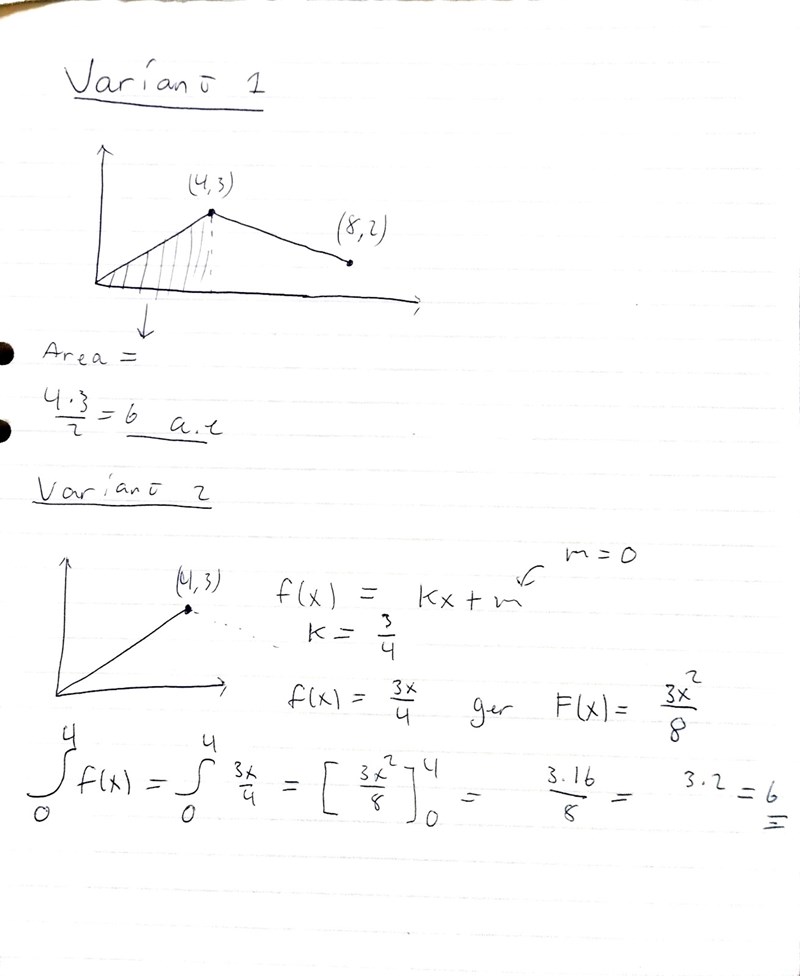 Variant 1
(4,3)
(8,2)
Area =
4·3/2 = 6 a.e
Variant 2
(4,3)
f(x) = kx + m
m = 0
k = 3/4
f(x) = 3x/4 ger F(x) = 3x²/8
∫₀⁴ f(x) = ∫₀⁴ 3x/4 = [3x²/8]₀⁴ = 3·16/8 = 3·2 = 6